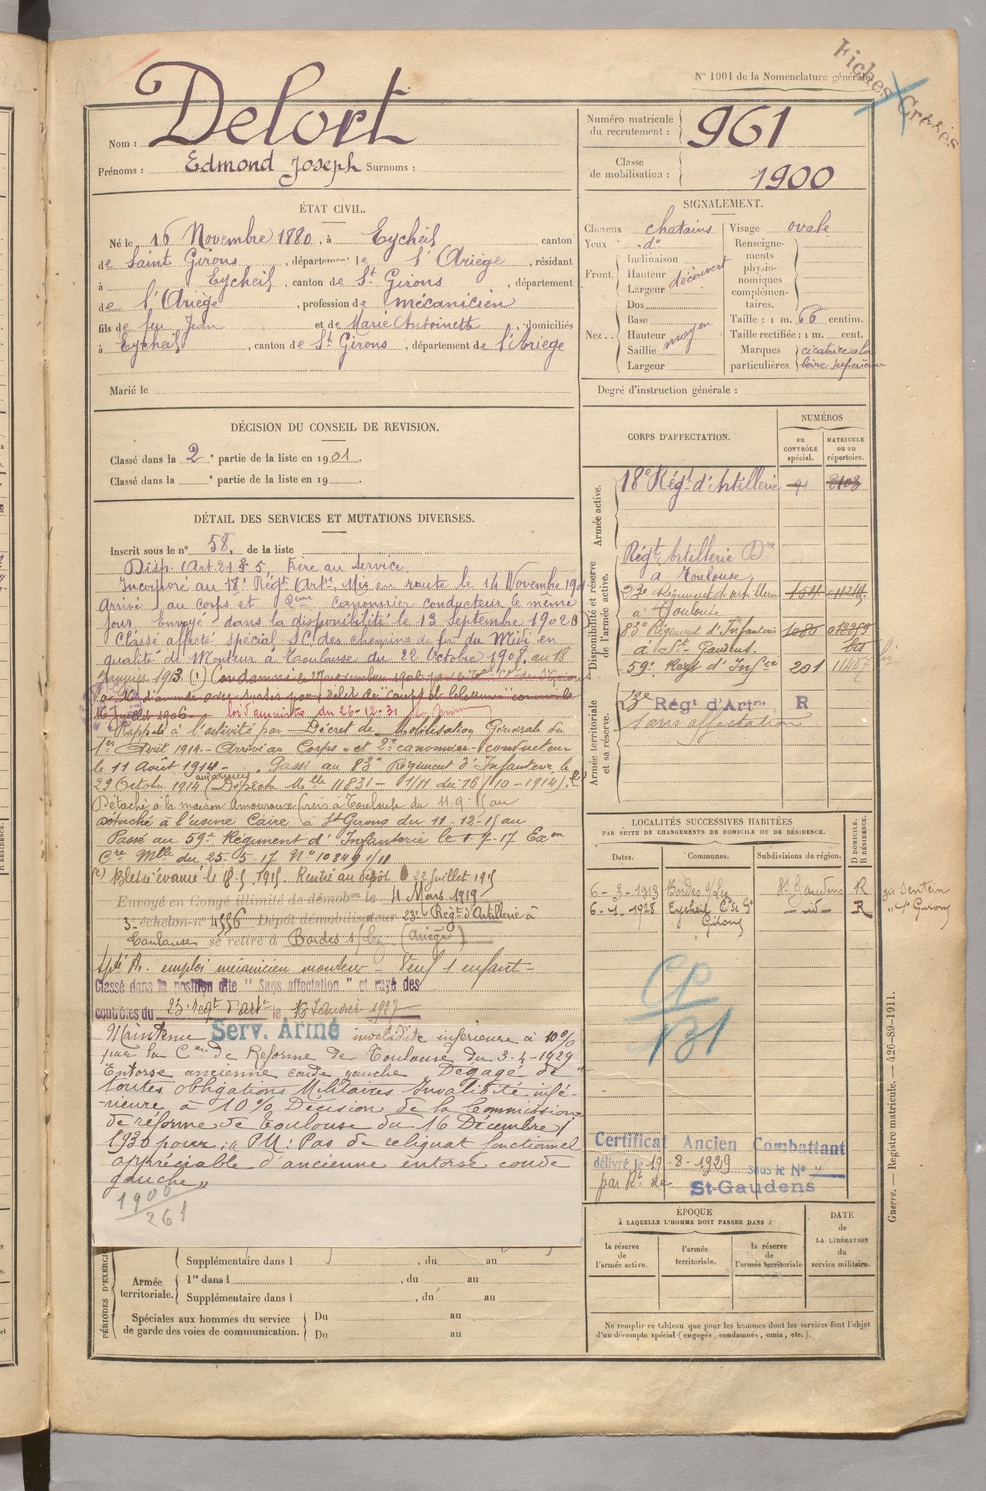 Fiches Créées
N° 1001 de la Nomenclature générale
Nom : Delort
Prénoms : Edmond Joseph Surnoms :
Numéro matricule du recrutement : 961
Classe de mobilisation : 1900
ÉTAT CIVIL.
Né le 16 Novembre 1880, à Eycheil canton
de Saint Girons, département de l'Ariège, résidant
à Eycheil, canton de St Girons, département
de l'Ariège, profession de mécanicien
fils de feu Jean et de Marie Antoinette, domiciliés
à Eycheil, canton de St Girons, département de l'Ariège
Marié le
SIGNALEMENT.
Cheveux chatains
Yeux d°
Front. Inclinaison
Hauteur découvert
Largeur
Nez.. Dos
Base
Hauteur moyen
Saillie
Largeur
Visage ovale
Renseignements physionomiques complémentaires.
Taille : 1 m. 66 centim.
Taille rectifiée : 1 m. cent.
Marques particulières. cicatrice à la lèvre supérieure
Degré d'instruction générale :
DÉCISION DU CONSEIL DE REVISION.
Classé dans la 2e partie de la liste en 1901.
Classé dans la e partie de la liste en 19
DÉTAIL DES SERVICES ET MUTATIONS DIVERSES.
Inscrit sous le n° 58. de la liste
Disp. Art 21 § 5, Frère au Service.
Incorporé au 18e Régt Artie, Mis en route le 14 Novembre 1901
Arrivé au corps et 2eme canonnier conducteur le même
jour. Envoyé dans la disponibilité le 13 Septembre 1902
Classé affecté spécial SC des chemins de fer du Midi en
qualité de Monteur à Toulouse du 22 Octobre 1908, au 18
Janvier 1913 (1) Condamné le 17 novembre 1906
16 Juillet 1906 loi d'amnistie du 26-12-31
Rappelé à l'activité par Décret de Mobilisation Générale du
1er Août 1914. Arrivé au Corps et 2e canonnier conducteur
le 11 Août 1914. Passé au 83e Régiment d'Infanterie le
29 Octobre 1914 (Dépêche Mlle 11831 - 1/11 du 16/10-1914).
Détaché à la maison Amouroux frères à Toulouse du 11.9. au
détaché à l'usine Caire à St Girons du 11-12-1 au
Passé au 59e Régiment d'Infanterie le 1-7-17 Exon
Cre Mlle du 25-5-17 N° 10849 1/11
(2) Blessé évacué le 8-5 1915 Rentré au dépôt 22 juillet 1915
Envoyé en Congé illimité de démobon le 4 Mars 1919
3e échelon n° 4556 Dépôt démobilisateur 23e Régt d'Artillerie à
Toulouse se retire à Bordes s/Lez (Ariège)
emploi mécanicien monteur - Veuf 1 enfant -
Classé dans la position dite " Sans affectation " et rayé des
contrôles du 23e régt d'artie le 16 Janvier 1927
Maintenu Serv. Armé invalidité inférieure à 10%
par la Con de Réforme de Toulouse du 3-4-1929
Entorse ancienne coude gauche Dégagé de
toutes obligations Militaires Invalidité infé-
rieure à 10% Décision de la Commission
de réforme de Toulouse du 16 Décembre
1930 pour: " PM : Pas de reliquat fonctionnel
appréciable d'ancienne entorse coude
gauche "
1900
261
CORPS D'AFFECTATION.
NUMÉROS
au CONTRÔLE spécial.
MATRICULE ou au répertoire.
Armée active.
18e Régt d'Artillerie 91 2103
Disponibilité et réserve de l'armée active.
Régt Artillerie Dre
à Toulouse
23e Régiment d'artillerie
à Toulouse
83e Régiment d'Infanterie 1080
à St Gaudens. bis
59e Régt d'Infie 201 11407
Armée territoriale et sa réserve.
23e Régt d'Artie. R
Sans affectation
LOCALITÉS SUCCESSIVES HABITÉES
PAR SUITE DE CHANGEMENTS DE DOMICILE OU DE RÉSIDENCE.
Dates. Communes. Subdivisions de région. D DOMICILE. R RÉSIDENCE.
6-3-1913 Bordes s/Lez St Gaudens R gie Sentein
6-1-1928 Eycheil Con de St Girons - id - R " St Girons
CP
131
Certificat Ancien Combattant
délivré le 19-8-1929 sous le N° "
par Rt de St-Gaudens
ÉPOQUE
À LAQUELLE L'HOMME DOIT PASSER DANS :
la réserve de l'armée active.
l'armée territoriale.
la réserve de l'armée territoriale
DATE de LA LIBÉRATION du service militaire.
Ne remplir ce tableau que pour les hommes dont les services font l'objet
d'un décompte spécial (engagés, condamnés, omis, etc.).
PÉRIODES D'EXERCICES
Supplémentaire dans l , du au
Armée territoriale. 1re dans l , du au
Supplémentaire dans l , du au
Spéciales aux hommes du service de garde des voies de communication. Du au
Du au
Guerre. — Registre matricule. — 426-89-1911.